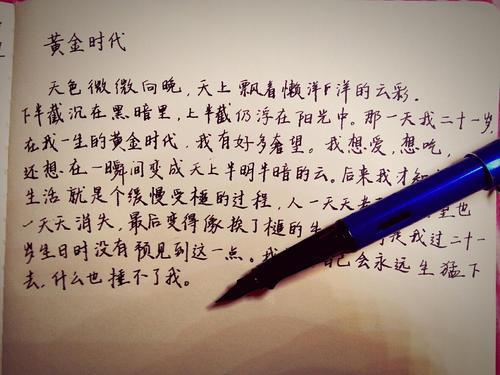 黄金时代
天色微微向晚，天上飘着懒洋洋的云彩。
下半截沉在黑暗里，上半截仍浮在阳光中。那一天我二十一岁
在我一生的黄金时代，我有好多奢望。我想爱，想吃，
还想在一瞬间变成天上半明半暗的云。后来我才
生活就是个缓慢受槌的过程，人一天天老 也
一天天消失，最后变得像挨了槌的 是我过二十一
岁生日时没有预见到这一点。我 己会永远生猛下
去，什么也捶不了我。